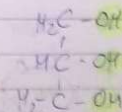 H₂C – OH
HC – OH
H₂ – C – OH